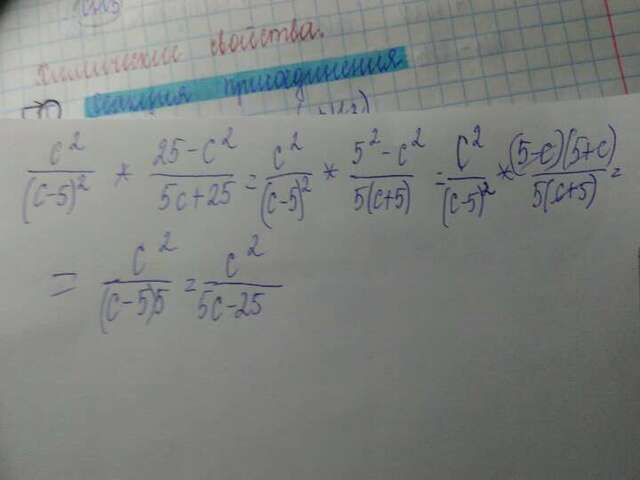 Химические свойства.
реакция присоединения
c²/(c-5)² * 25-c²/5c+25 = c²/(c-5)² * 5²-c²/5(c+5) = c²/(c-5)² * (5-c)(5+c)/5(c+5) =
= c²/(c-5)5 = c²/5c-25